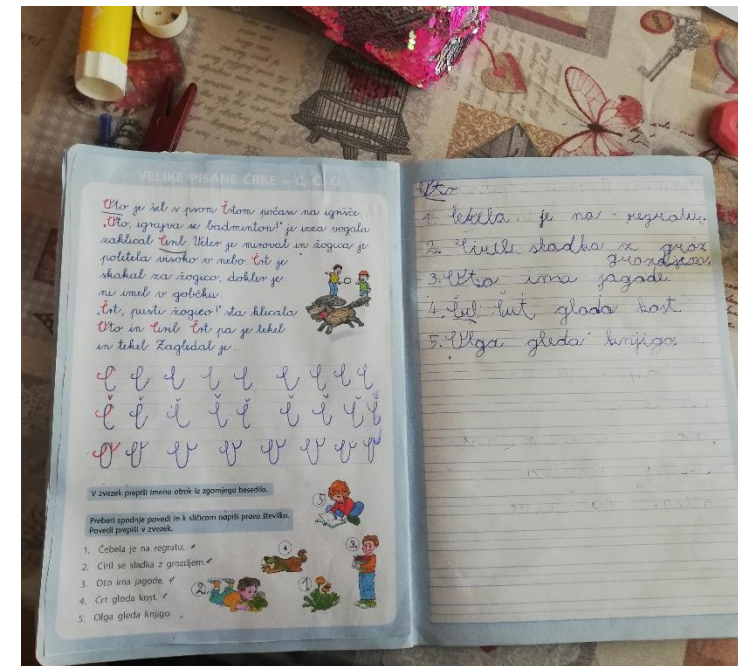 VELIKE PISANE ČRKE – C, Č, O
Oto je šel s psom Črtom počasi na igrišče.
„Oto, igrajva se badminton!" je izza vogala
zaklical Ciril. Veter je miroval in žogica je
poletela visoko v nebo. Črt je
skakal za žogico, dokler je
ni imel v gobčku.
„Črt, pusti žogico!" sta klicala
Oto in Ciril. Črt pa je tekel
in tekel. Zagledal je ...
C C C C C C C C C
Č Č Č Č Č Č Č Č Č
O O O O O O O O
V zvezek prepiši imena otrok iz zgornjega besedila.
Preberi spodnje povedi in k sličicam napiši pravo številko.
Povedi prepiši v zvezek.
1. Čebela je na regratu. ✓
2. Ciril se sladka z grozdjem. ✓
3. Oto ima jagode. ✓
4. Črt gloda kost. ✓
5. Olga gleda knjigo.
5
4
3
2
1
Oto
1. Čebela je na regratu.
2. Ciril sladka z groz
grozdjem.
3. Oto ima jagode.
4. Črt gloda kost.
5. Olga gleda knjigo.